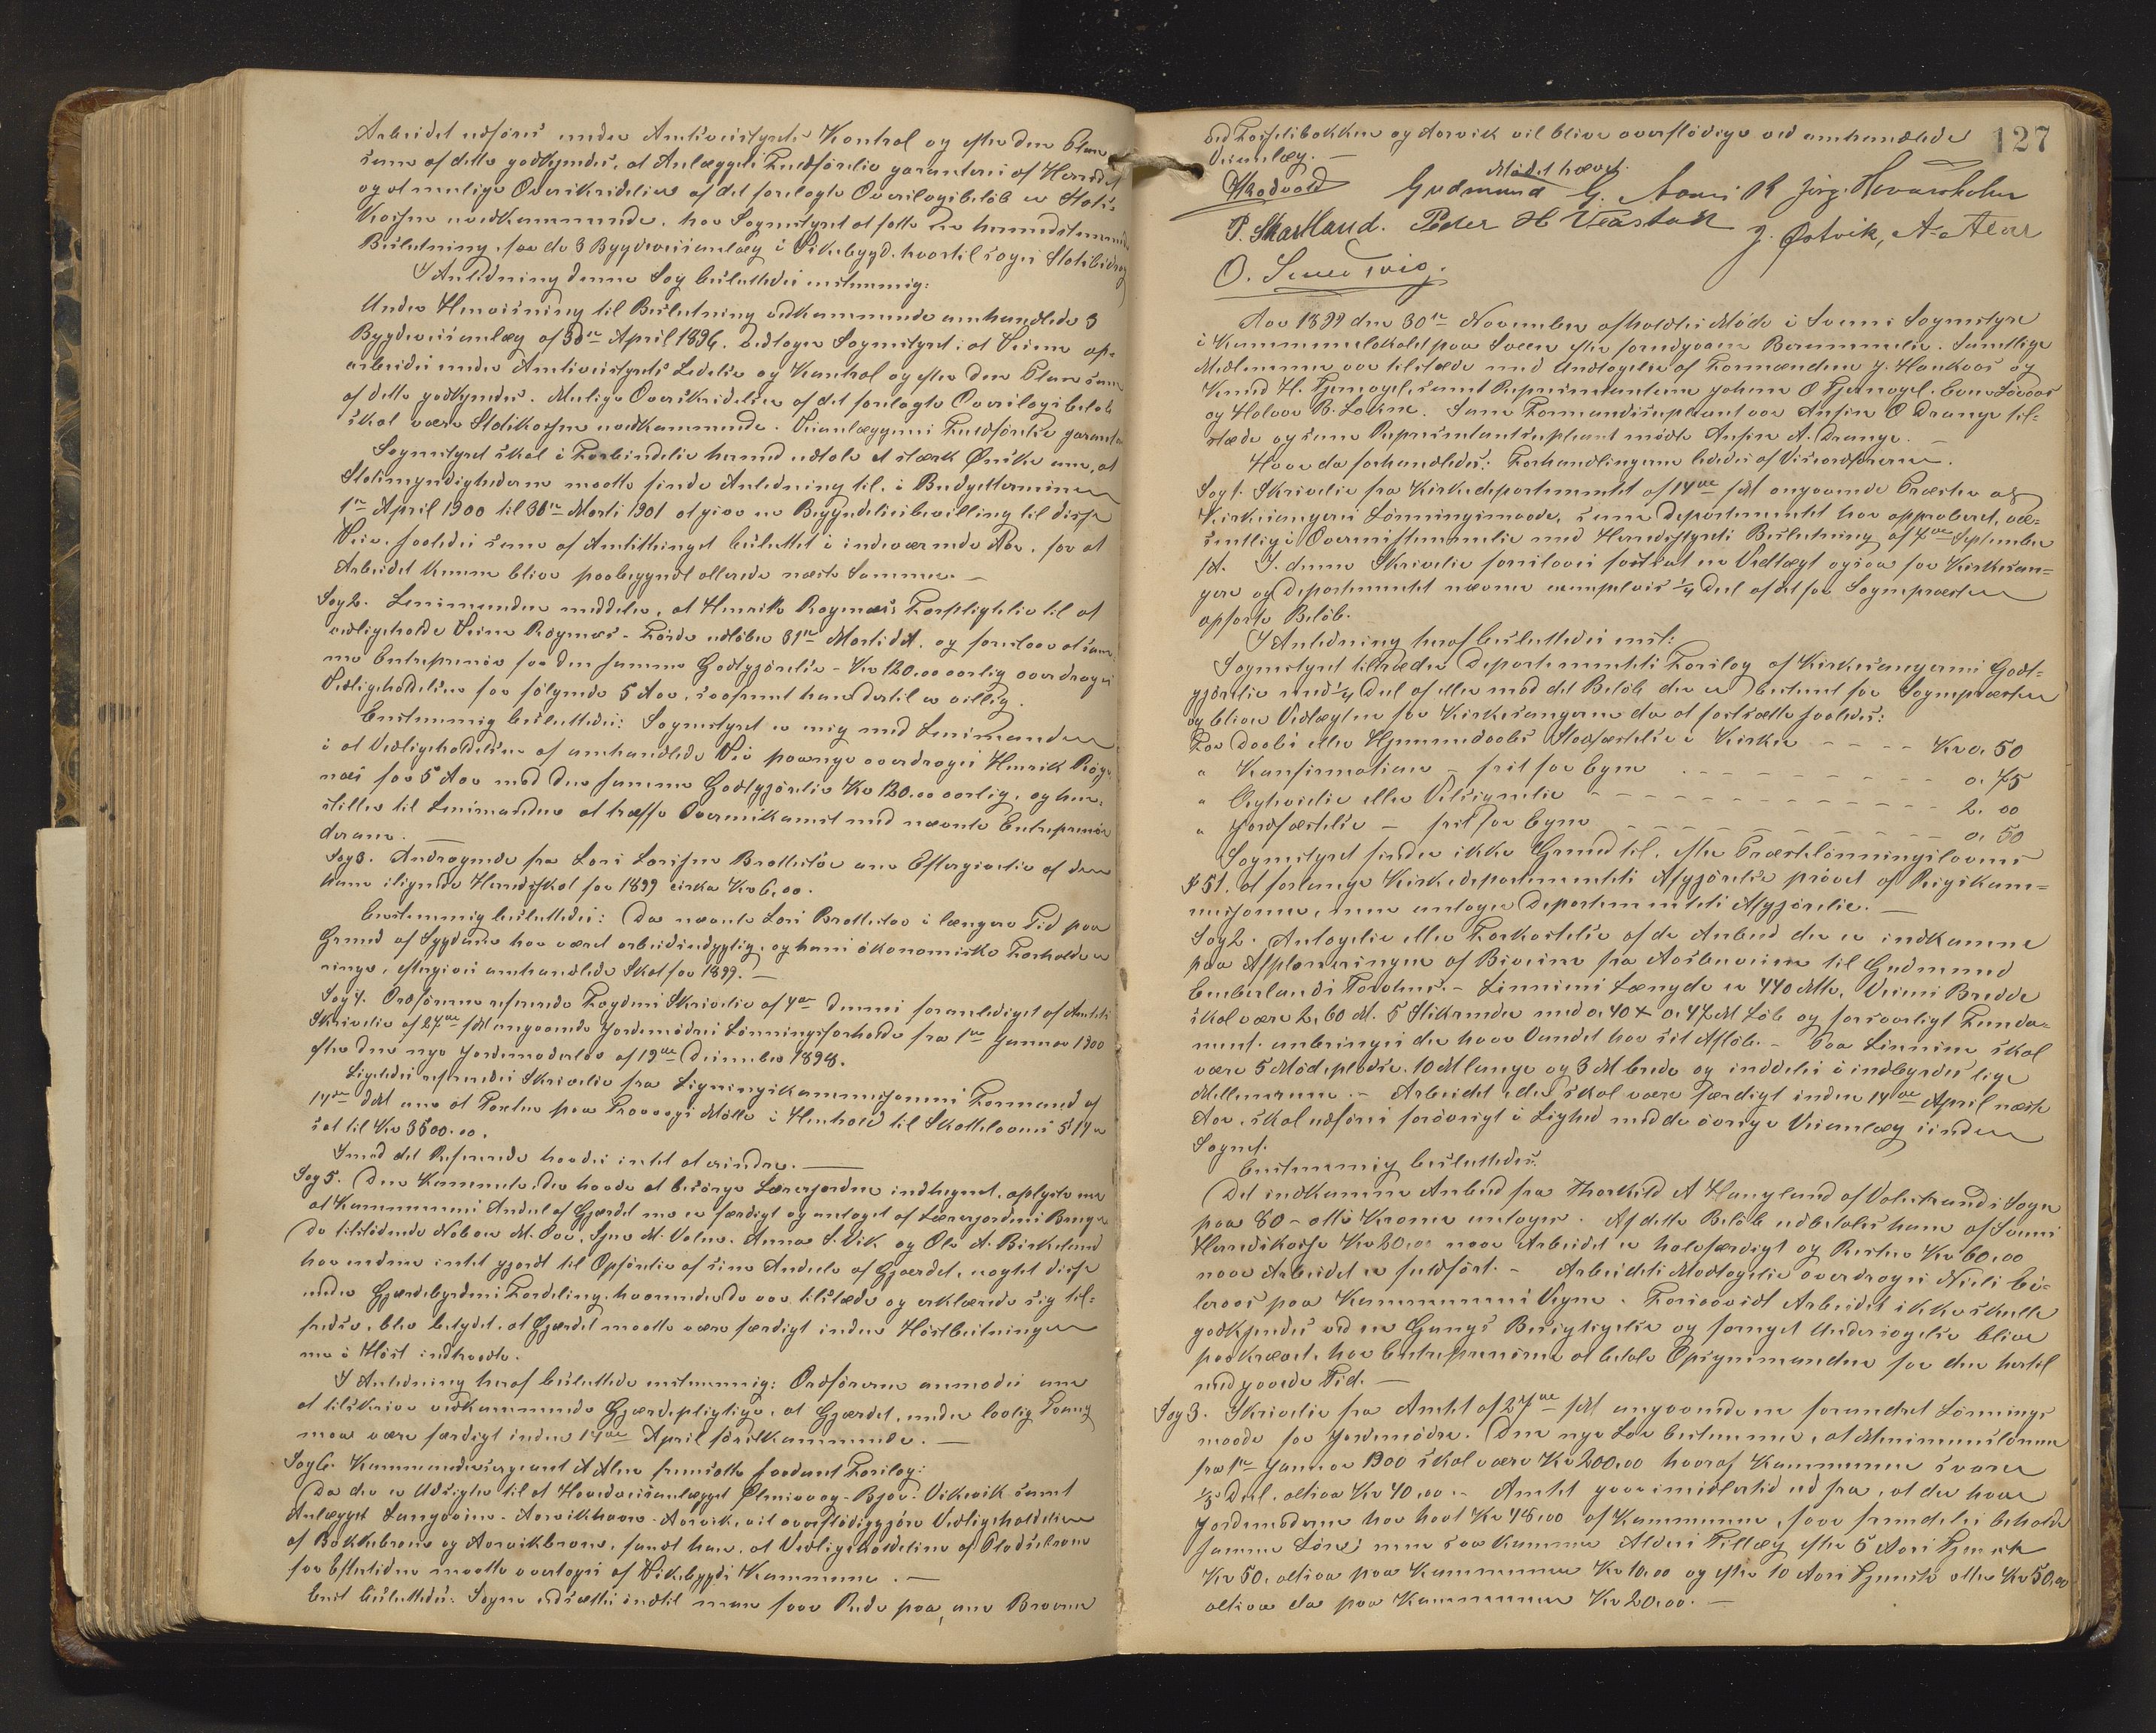 Arbeidet udføres under Amtsveistyrets Kontrol og efter den Plan
som af dette godkjendes, at Anlæggets Fuldførelse garanteres af Herredet
og at mulige Overskridelser af det forelagte Overslagsbeløb er Stats-
kassen uvedkommende, har Sognestyret at fatte en
Beslutning for de 3 Bygdeveisanlæg i Vikebygd, hvortil søges Statsbidrag
I Anledning denne Sag besluttedes enstemmig:
Under Henvisning til Beslutning vedkommende omhandlede 3
Bygdeveisanlæg af 30te April 1896, vedtager Sognestyret, at Veiene op-
arbeides under Amtsveistyrets Ledelse og Kontrol og efter den Plan som
af dette godkjendes. Mulige Overskridelser af det forelagte Overslagsbeløb
skal være Statskassen uvedkommende. Veianlæggenes Fuldførelse garanteres
Sognestyret skal i Forbindelse hermed udtale et stærkt Ønske om, at
Statsmyndighederne maatte finde Anledning til, i Budgetterminen
1te April 1900 til 31te Marts 1901 at give en Begyndelsesbevilling til disse
Veie, saaledes som af Amtsthinget besluttet i indeværende Aar, for at
Arbeidet kunne blive paabegyndt allerede næste Sommer. –
Sag 2. Lensmanden meddeler, at Henrik Røgenæs's Forpligtelse til at
vedligeholde Veien Røgenæs - Førde udløber 31te Marts d. A. og foreslaar at sam-
me Entreprenør for den samme Godtgjørelse – Kr 120.00 aarlig overdrages
Vedligeholdelsen for følgende 5 Aar, saafremt han dertil er villig.
Enstemmig besluttedes: Sognestyret er enig med Lensmanden
i at Vedligeholdelsen af omhandlede Vei paany overdrages Henrik Røge-
næs for 5 Aar mod den samme Godtgjørelse Kr 120.00 aarlig, og hen-
stilles til Lensmanden at træffe Overenskomst med nævnte Entreprenør
derom. –
Sag 3. Andragende fra Lars Larsen Bratteslø om Eftergivelse af den
ham ilignede Herredsskat for 1899 cirka Kr 6.00.
Enstemmig besluttedes: Da nævnte Lars Bratteslø i længere Tid paa
Grund af Sygdom har været arbeidsudygtig, og hans økonomiske Forholde er
ringe, eftergives omhandlede Skat for 1899. –
Sag 4. Ordføreren refererede Fogdens Skrivelse af 4de dennes foranlediget af Amtets
Skrivelse af 27de f. M. angaaende Jordemødres Lønningsforholde fra 1te Januar 1900
efter den nye Jordemoderlov af 19de December 1898.
Ligeledes refereredes Skrivelse fra Ligningskommissionens Formand af
14de d. M. om at Taxten paa Mølle i Henhold til Skattelovens § 14 er
sat til Kr 3500.00.
Imod det Refererede havdes intet at erindre. –
Sag 5. Den Komite, der havde at besørge Lærerjorden indhegnet, oplyste om
at Kommunens Andel af Gjerdet nu er færdigt og antaget af Lærerjordens Bruger
Da tilstødende Naboer M. Aae, Iver M. Valen, Anna S. Vik og Ole A. Birkeland
har endnu intet gjort til Opførelse af sine Andele af Gjærdet, uagtet disse
under Gjerdebyrdens Fordeling, hvorunder de var tilstede og erklærede sig til-
fredse, blev betydet, at Gjærdet maatte være færdigt inden Høstbeitningen
nu i Høst indtraadte.
I Anledning heraf besluttedes enstemmig: Ordføreren anmodes om
at tilskrive vedkommende Gjerdepligtige, at Gjærdet, under lovlig Tvang
maa være færdigt inden 14de April førstkommende. –
Sag 6. Kommandersergeant A Alne fremsatte saadant Forslag:
Da der er Udsigter til at Hovedveisanlægget Ølensvaag - Bjoa - Vikevik samt
Anlægget Langevein - Aarvikhavn - Aarvik, vil overflødiggjøre Vedligeholdelsen
af Bakkebroen og Aarvikbroen, fandt han, at Vedligeholdelsen af
for Eftertiden maatte overtages af Vikebygds Kommune. –
Enst. besluttedes: Sagen udsættes indtil man faar Rede paa, om Broerne
127
ved Fossebakken og Aarvik vil blive overflødige ved omhandlede
Veianlæg. –
Mødet hævet.
Gudmund G. Aarvik Jørg. Hovarsholm
P. Skartland. Peder H Veastad J. Østvik, A. Alne
O. Svendsvig.
Aar 1899 den 30te November afholdtes Møde i Sveens Sognestyre
i Kommunelokalet paa Sveen efter foregaaende Berammelse. Samtlige
Medlemmer var tilstede med Undtagelse af Formændene J. Haukaas og
Knud H. Tjernagel, samt Repræsentanterne Johan O Tjernagel, Even Løvaas
og Halvor B. Lokne. Som Formandssuppleant var Anfin O Drange til-
stede og som Repræsentantsuppleant mødte Anfin A. Drange. –
Hvor da forhandledes: Forhandlingerne lededes af Viceordføreren.
Sag 1. Skrivelse fra Kirkedepartementet af 14de f. M. angaaende Præstens og
Kirkesangeres Lønningsmaade, som Departementet har approberet, væ-
sentlig i Overensstemmelse med Herredstyrets Beslutning af 7de September
f. A. I denne Skrivelse foreslaaes fastsat en Vedtægt ogsaa for Kirkesan-
gere og Departementet nævner exempelvis ¼ Del af det for Sognepræsten
opførte Beløb.
I Anledning heraf besluttedes enst:
Sognestyret tiltræder Departementets Forslag af Kirkesangernes Godt-
gjørelse med ¼ Del af eller mod det Beløb der er bestemt for Sognepræsten
og bliver Vedtægten for Kirkesangeren da at fastsætte saaledes:
For Daab i eller Hjemmedaabs Stadfæstelse i Kirken - - - - - Kr 0.50
" Konfirmation – frit for Egne - - - - - - - - - 0.75
" Ægtevielse eller Velsignelse - - - - - - - - - - - 2.00
" Jordfæstelse – frit for Egne - - - - - - - - - - - 0.50
Sognestyret finder ikke Grund til, efter Præstelønningslovens
§ 51. at forlange Kirkedepartementets Afgjørelse prøvet af Rigskom-
missionen, men antager Departementets Afgjørelse. –
Sag 2. Antagelse eller Forkastelse af de Anbud der er indkomne
paa Afplaneringen af Biveien fra Aasbuveien til Gudmund
Emberlands Vaaahus. – Liniens Længde er 440 Mtr, Veiens Bredde
skal være 2,60 M. 5 Stikrender med 0,40 x 0,47 M Løb og forsvarligt Funda-
ment anbringes der hvor Vandet har sit Afløb. – Paa Linien skal
være 5 Mødepladse. 10 M lange og 3 M brede og inddeles i indbyrdes lige
Mellemrum. – Arbeidet, der skal være færdigt inden 14de April næste
Aar, skal udføres forøvrigt i Lighed med de øvrige Veianlæg inden
Sognet.
Enstemmig besluttedes:
Det indkomne Anbud fra Thorkild A Haugland af Valestrands Sogn
paa 80 – otti Kroner antages. Af dette Beløb udbetales ham af Sveens
Herredskasse Kr 20.00 naar Arbeidet er halvfærdigt og Resten Kr 60.00
naar Arbeidet er fuldført. – Arbeidets Modtagelse overdrages Niels Eð-
leraas paa Kommunens Vegne. Forsaavidt Arbeidet ikke skulle
godkjendes ved en Gangs Besigtigelse og fornyet Undersøgelse bliver
paakrævet, har Entreprenøren at betale Opsynsmanden for den hertil
medgaaede Tid. –
Sag 3. Skrivelse fra Amtet af 27de f. M. angaaende en forandret Lønnings-
maade for Jordemødre. Den nye Lov bestemmer, at Minimumslønnen
fra 1te Januar 1900 skal være Kr 200.00 hvoraf Kommunen svarer
⅕ Del, altsaa Kr 40.00. – Amtet gaar imidlertid ud fra, at der hvor
Jordemoderen har havt Kr 48.00 af Kommunen, faar fremdeles beholde
samme Løn; men saa kommer Alders Tillæg efter 5 Aars Tjeneste
Kr 50, altsaa paa Kommunen Kr 10.00 og efter 10 Aars Tjeneste atter Kr 50.00
altsaa da paa Kommunen Kr 20.00. –